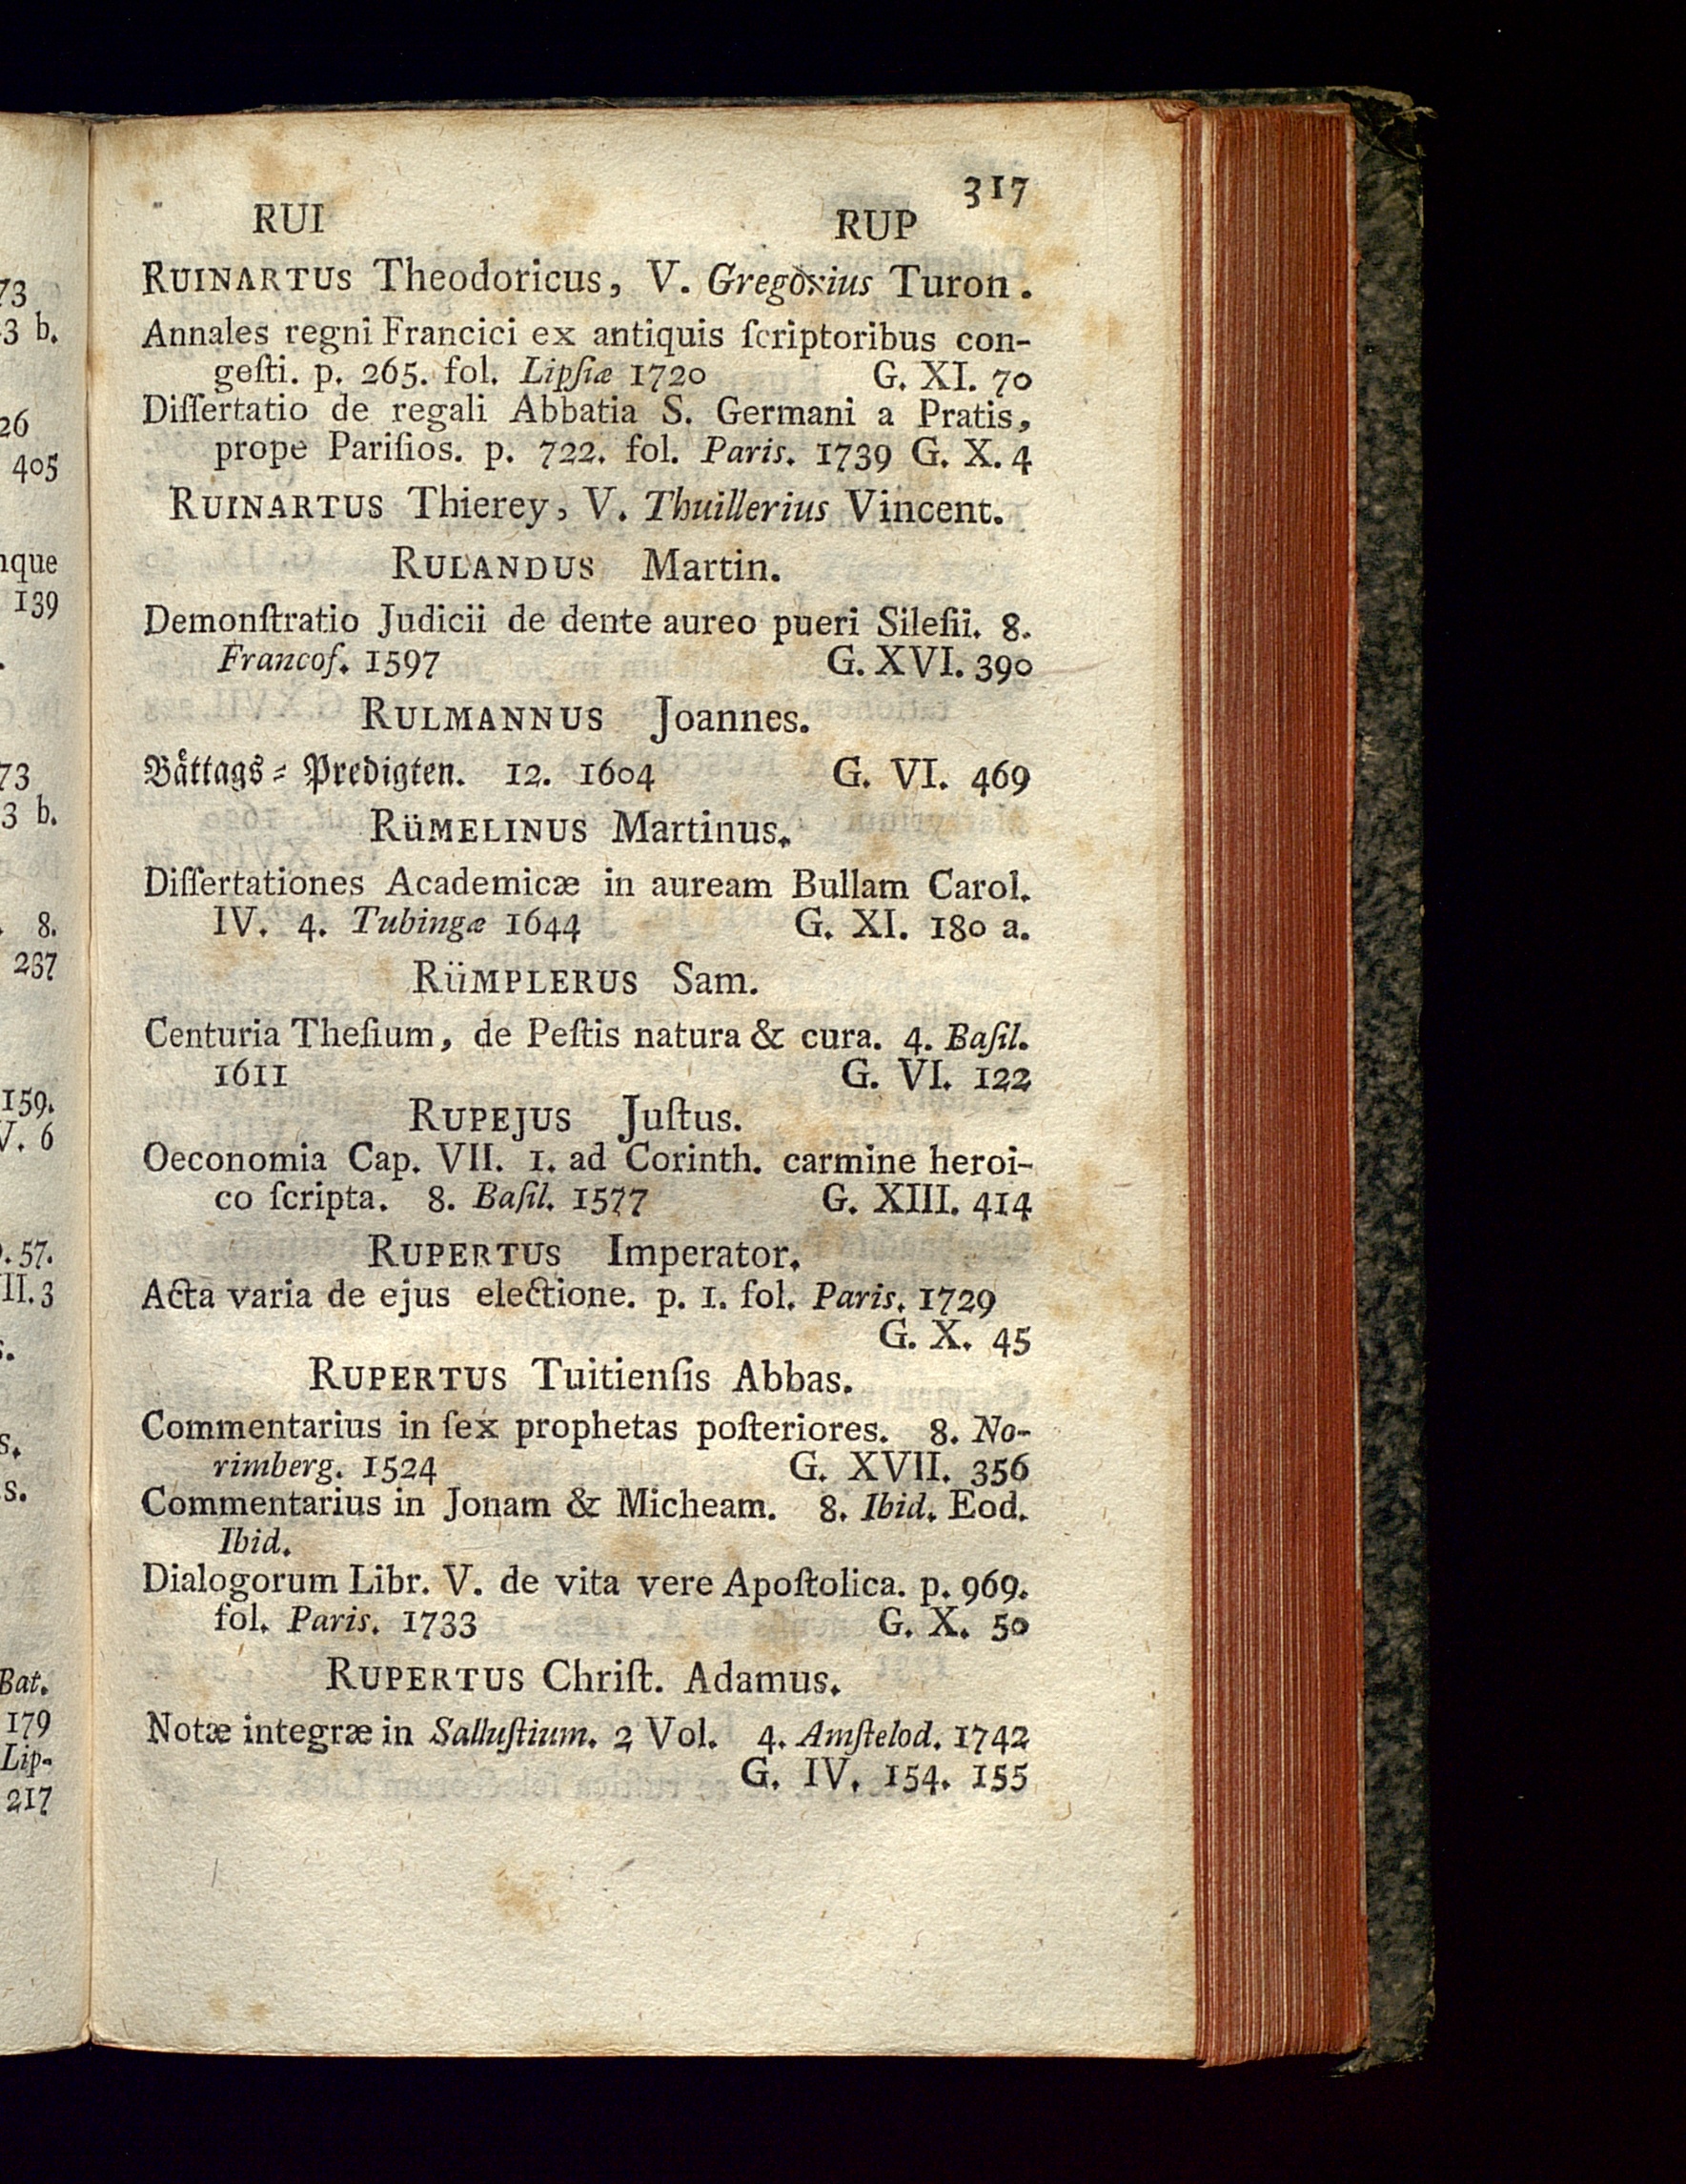 317
RUI RUP
RUINARTUS Theodoricus, V. Gregorius Turon.
Annales regni Francici ex antiquis ſcriptoribus con-
geſti. p. 265. fol. Lipſiæ 1720 G. XI. 70
Diſſertatio de regali Abbatia S. Germani a Pratis,
prope Pariſios. p. 722. fol. Paris. 1739 G. X. 4
RUINARTUS Thierey, V. Thuillerius Vincent.
RULANDUS Martin.
Demonſtratio Judicii de dente aureo pueri Sileſii. 8.
Francof. 1597 G. XVI. 390
RULMANNUS Joannes.
Båttags-Predigten. 12. 1604 G. VI. 469
RüMELINUS Martinus.
Diſſertationes Academicæ in auream Bullam Carol.
IV. 4. Tubingæ 1644 G. XI. 180 a.
RüMPLERUS Sam.
Centuria Theſium, de Peſtis natura & cura. 4. Baſil.
1611 G. VI. 122
RUPEJUS Juſtus.
Oeconomia Cap. VII. 1. ad Corinth. carmine heroi-
co ſcripta. 8. Baſil. 1577 G. XIII. 414
RUPERTUS Imperator.
Acta varia de ejus electione. p. 1. fol. Paris. 1729
G. X. 45
RUPERTUS Tuitienſis Abbas.
Commentarius in ſex prophetas poſteriores. 8. No-
rimberg. 1524 G. XVII. 356
Commentarius in Jonam & Micheam. 8. Ibid. Eod.
Ibid.
Dialogorum Libr. V. de vita vere Apoſtolica. p. 969.
fol. Paris. 1733 G. X. 50
RUPERTUS Chriſt. Adamus.
Notæ integræ in Salluſtium. 2 Vol. 4. Amſtelod. 1742
G. IV. 154. 155
73
3 b.
26
405
nque
139
73
3 b.
8.
237
159.
V. 6
57.
II. 3
s.
s.
Bat.
179
Lip-
217